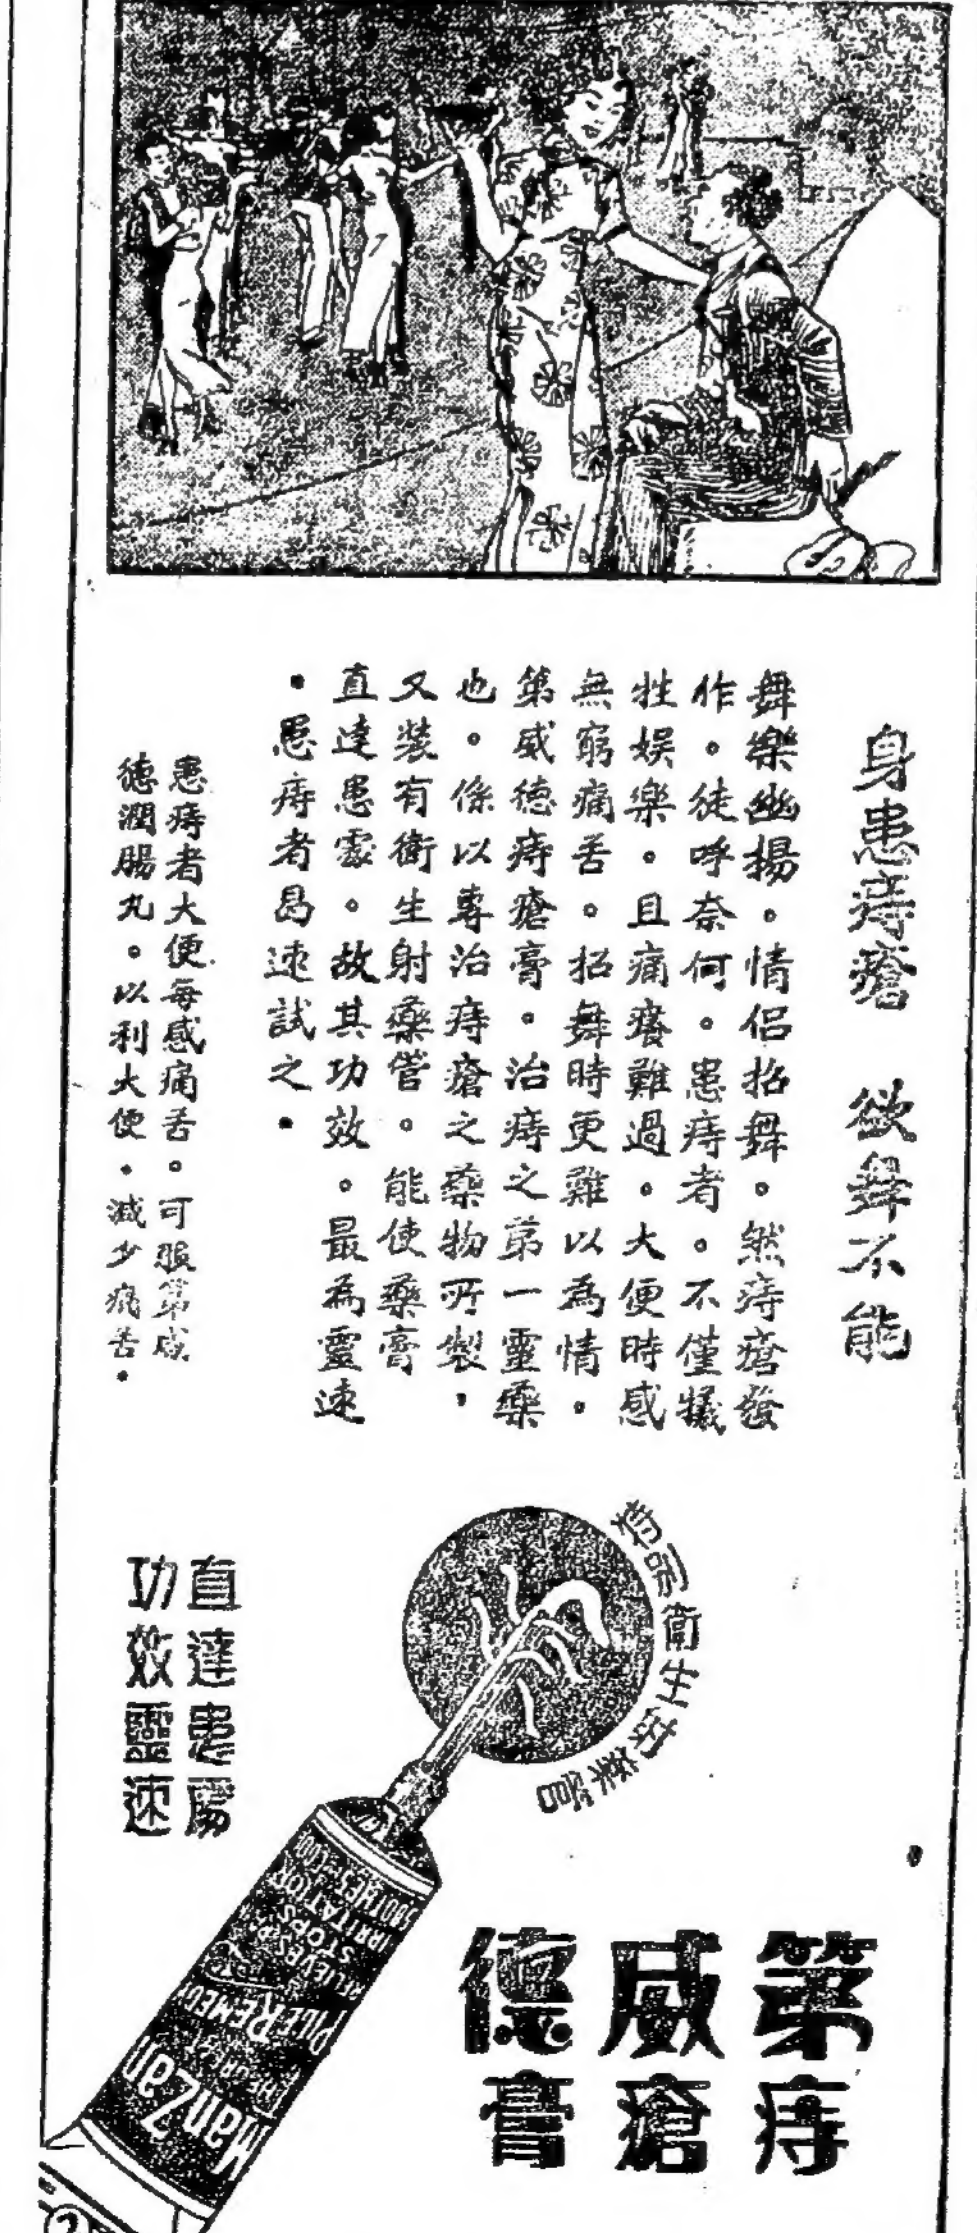 身患痔瘡　欲舞不能
舞樂幽揚。情侶招舞。然痔瘡發
作。徒呼奈何。患痔者。不僅犧
牲娱樂。且痛癢難過。大便時感
無窮痛苦。招舞時更難以為情。
第威德痔瘡膏。治痔之第一靈藥
也。係以專治痔瘡之藥物所製，
又裝有衛生射藥管。能使藥膏
直達患處。故其功效。最為靈速
。患痔者曷速試之。
患痔者大便每感痛苦。可服第威
德潤腸丸。以利大便。減少痛苦。
特配衛生射藥管
直達患處
功效靈速
第威德
痔瘡膏
ManZan
PILE REMEDY
RELIEVES PAIN
STOPS
IRRITATION
SOOTHES